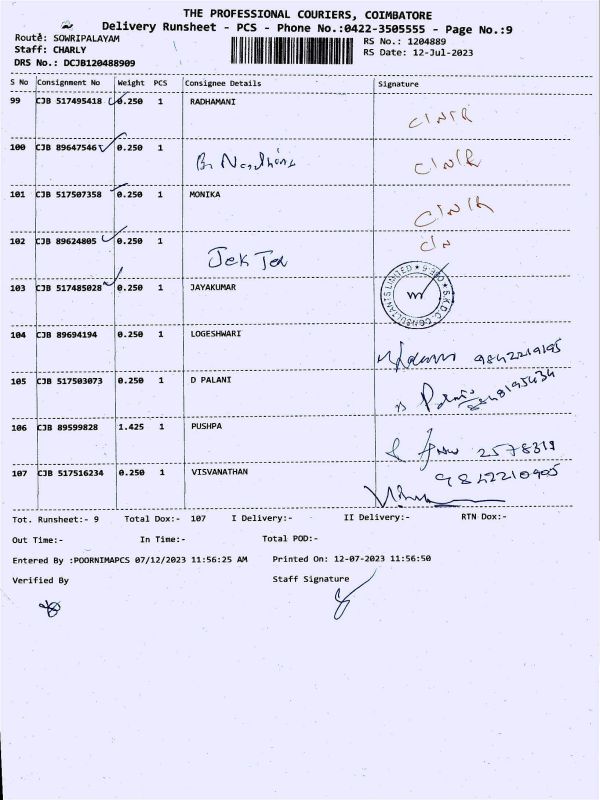 THE PROFESSIONAL COURIERS, COIMBATORE
Delivery Runsheet - PCS - Phone No.:0422-3505555 - Page No.:9
Route: SOWRIPALAYAM
RS No.: 1204889
Staff: CHARLY
RS Date: 12-Jul-2023
DRS No.: DCJB120488909
S No Consignment No Weight PCS Consignee Details Signature
99 CJB 517495418 0.250 1 RADHAMANI
100 CJB 89647546 0.250 1
101 CJB 517507358 0.250 1 MONIKA
102 CJB 89624805 0.250 1
103 CJB 517485028 0.250 1 JAYAKUMAR
104 CJB 89694194 0.250 1 LOGESHWARI
9842219195
105 CJB 517503073 0.250 1 D PALANI
106 CJB 89599828 1.425 1 PUSHPA
2578319
107 CJB 517516234 0.250 1 VISVANATHAN
9842210905
Tot. Runsheet:- 9 Total Dox:- 107 I Delivery:- II Delivery:- RTN Dox:-
Out Time:- In Time:- Total POD:-
Entered By :POORNIMAPCS 07/12/2023 11:56:25 AM Printed On: 12-07-2023 11:56:50
Verified By Staff Signature